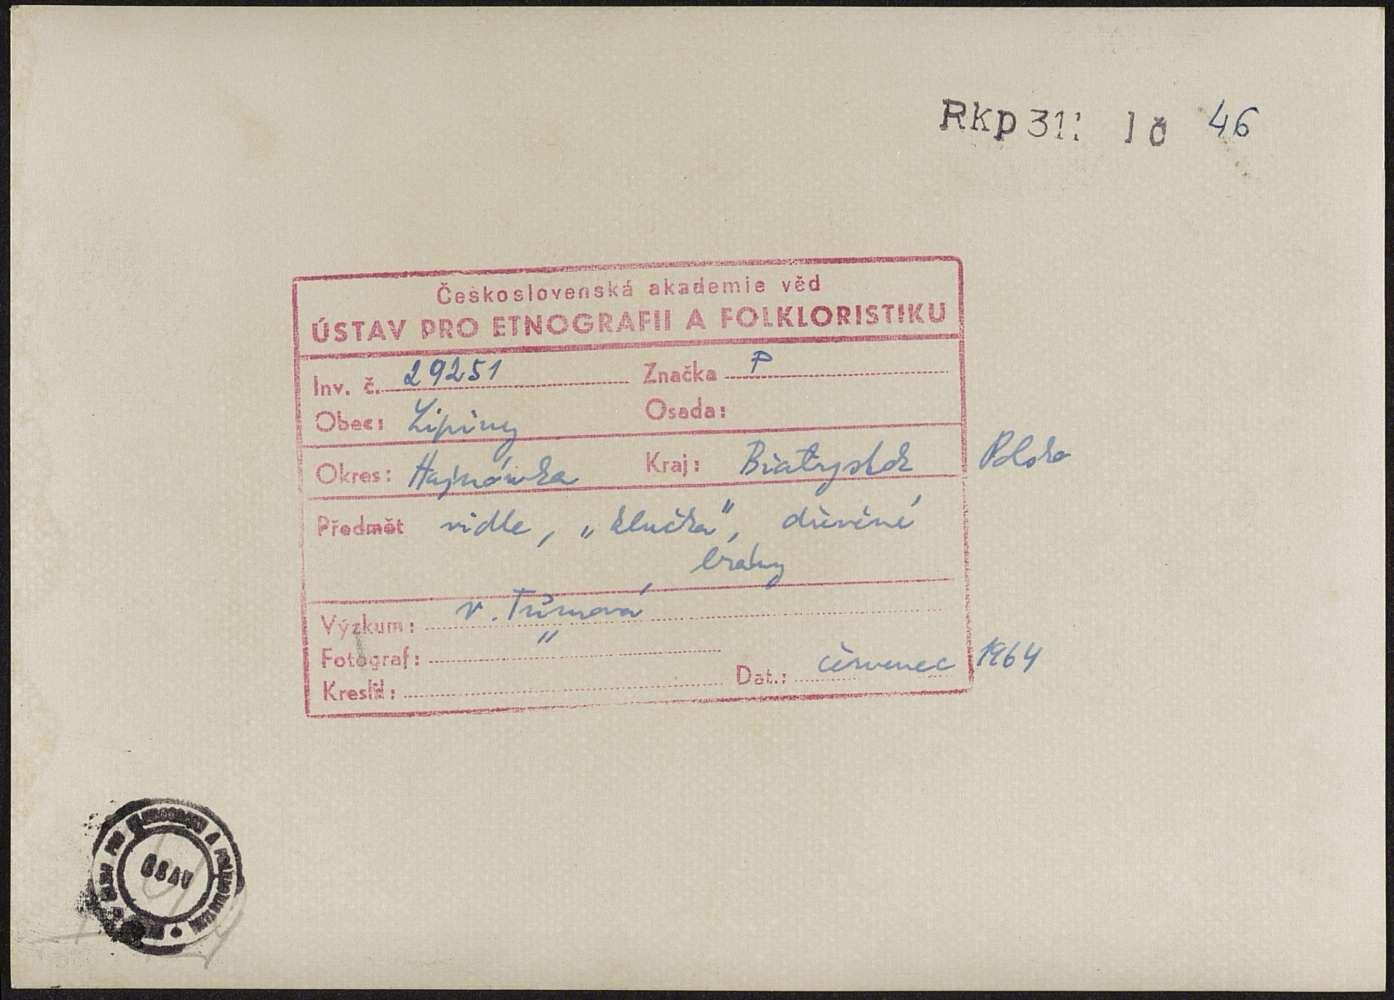 Rkp 311 ič 46
Československá akademie věd
ÚSTAV PRO ETNOGRAFII A FOLKLORISTIKU
Inv. č. 29251 Značka P
Obec: Lipiny Osada:
Okres: Hajnówka Kraj: Białystok Polsko
Předmět vidle, „klučka", dřevěné
brány
Výzkum: V. Tůmová
Fotograf: "
Kreslil: Dat.: červenec 1964